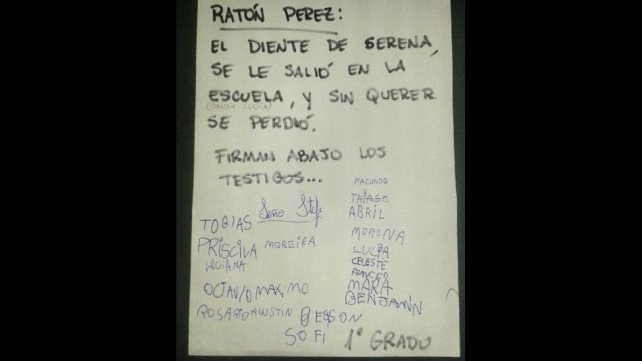 RATÓN PEREZ:
EL DIENTE DE SERENA,
SE LE SALIÓ EN LA
ESCUELA, Y SIN QUERER
(SANTA LUCIA)
SE PERDIÓ.
FIRMAN ABAJO LOS
TESTIGOS...
FACUNDO
THIAGO
TOBIAS Seño Stefi ABRIL
MORONA
PRISCILA MOREIRA LUCIA
CELESTE
MARA
OCTAVIO MAXIMO
BENJAMIN
ROSARIO AGUSTIN GERSON
SOFI
1° GRADO